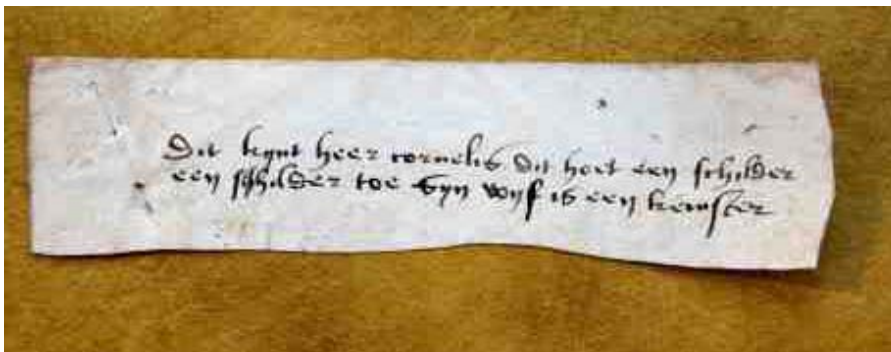 Dit kynt heer cornelis dit hoet een schilder
een schilder toe syn wijf is een kemster